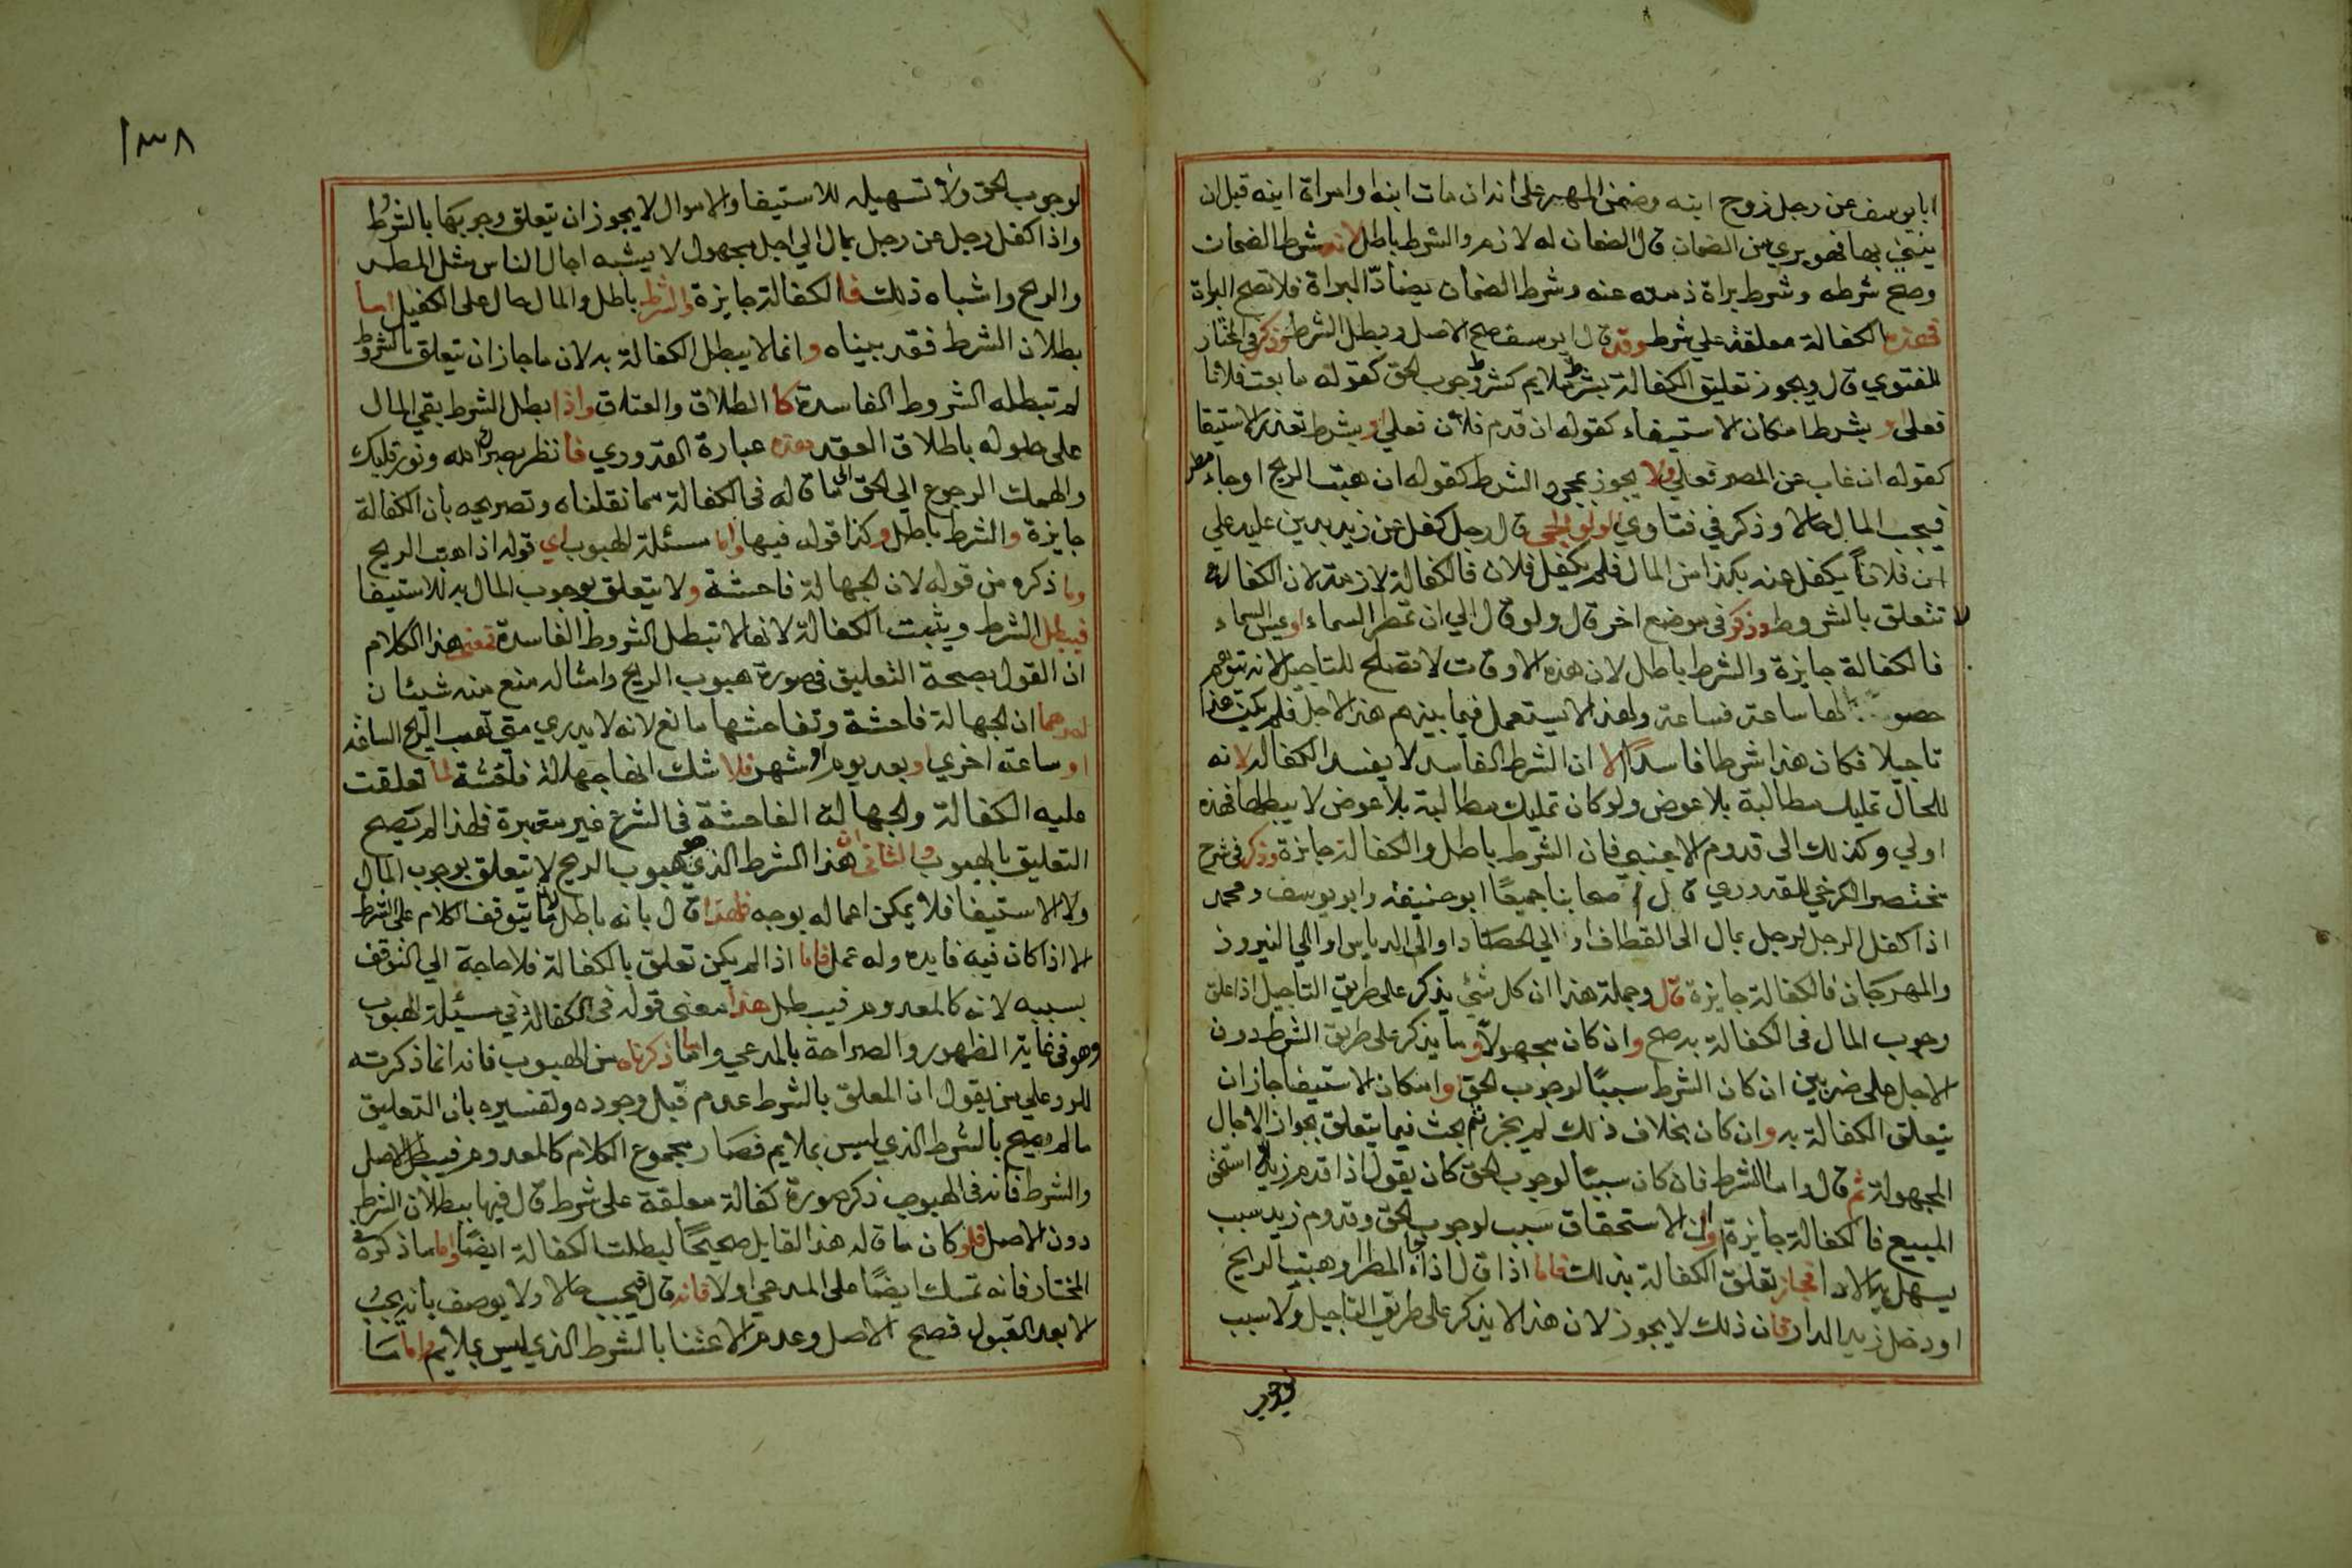 ابا يوسف عن رجل زوج ابنه وضمن المهر على انه ان مات ابنه او امراة ابنه قبل ان
يبني بها فهو بري من الضمان قال الضمان له لازم والشرط باطل لانه شرط الضمان
وصح شرطه وشرط براة ذمته عنه وشرط الضمان يضادّ البراة فلا تصح البراة
فهذه الكفالة معلقة علي شرط وقد قال ابو يوسف صح الاصل وبطل الشرط وذكر في المختار
للفتوي قال ويجوز تعليق الكفالة بشرط ملايم كشرط وجوب الحق كقوله ما بعت فلانا
فعلى او بشرط امكان الاستيفاء كقوله ان قدم فلان فعلي او بشرط تعذر الاستيفا
كقوله ان غاب عن المصر فعلي ولا يجوز بمجرد الشرط كقوله ان هبت الريح او جاء مطر
فيجب المال حالا وذكر في فتاوي الولوالجي قال رجل كفل عن زيد بدين عليه علي
ان فلاناً يكفل عنه بكذا من المال فلم يكفل فلان فالكفالة لازمة لان الكفالة
لا تتعلق بالشروط وذكر في موضع اخر قال ولو قال الي ان تمطر السماء او السماء
فالكفالة جايزة والشرط باطل لان هذه الاوقات لا تصلح للتاجيل لانه يتوهم
ساعة فساعة ولهذا لا يستعمل فيما بينهم هذا الاجل فلم يكن هذا
تاجيلا فكان هذا شرطا فاسداً الا ان الشرط الفاسد لا يفسد الكفالة لانه
للحال تمليك مطالبة بلا عوض ولو كان تمليك مطالبة بلا عوض لا يبطلها فهذه
اولي وكذلك الى قدوم الاجنبي فان الشرط باطل والكفالة جايزة وذكر في شرح
مختصر الكرخي للقدوري قال اصحابنا جميعًا ابو حنيفة وابو يوسف ومحمد
اذا كفل الرجل لرجل بمال الى القطاف او الي الحصاد او الى الدياس او الي النيروز
والمهرجان فالكفالة جايزة قال وجملة هذا ان كل شيء يذكر على طريق التاجيل اذا علق
وجوب المال في الكفالة به صح وان كان مجهولاً وما يذكر على طريق الشرط دون
الاجل على ضربين ان كان الشرط سببًا لوجوب الحق او امكان الاستيفا جاز ان
يتعلق الكفالة به وان كان بخلاف ذلك لم يجز ثم بحث فيما يتعلق بجواز الاجال
المجهولة ثم قال واما الشرط فان كان سببًا لوجوب الحق كان يقول اذا قدم زيد او استحق
المبيع فالكفالة جايزة لان الاستحقاق سبب لوجوب الحق وقدوم زيد سبب
يسهل به الادا فجاز تعلق الكفالة بذلك فاما اذا قال اذا جاء المطر او هبت الريح
او دخل زيد الدار فان ذلك لا يجوز لان هذا لا يذكر على طريق التاجيل ولا سبب
لوجوب
١٣٨
لوجوب الحق ولا تسهيله للاستيفا والاموال لا يجوز ان يتعلق وجوبها بالشرط
واذا كفل رجل عن رجل بمال الي اجل مجهول لا يشبه اجال الناس مثل المطر
والريح واشباه ذلك فالكفالة جايزة والشرط باطل والمال حال على الكفيل اما
بطلان الشرط فقد بيناه وانما لا يبطل الكفالة به لان ما جاز ان يتعلق بالشروط
لم تبطله الشروط الفاسدة كالطلاق والعتاق واذا بطل الشرط بقي المال
على حلوله باطلاق العقد هذه عبارة القدوري فانظر بصرك الله ونور قلبك
والهمك الرجوع الي الحق الى ما قاله في الكفالة مما نقلناه وتصريحه بان الكفالة
جايزة والشرط باطل وكذا قوله فيها واما مسئلة الهبوب اي قوله اذا هبت الريح
وما ذكره من قوله لان الجهالة فاحشة ولا يتعلق بوجوب المال به للاستيفا
فيبطل الشرط ويثبت الكفالة لانها لا تبطل الشروط الفاسدة فمعنى هذا الكلام
ان القول بصحة التعليق في صورة هبوب الريح وامثاله منع منه شيئان
احدهما ان الجهالة فاحشة وتفاحشها مانع لانه لا يدري متى تهب الريح الساعة
او ساعة اخري او بعد يوم او شهر فلا شك انها جهالة فاحشة لما تعلقت
عليه الكفالة والجهالة الفاحشة في الشرع غير معتبرة فلهذا لم يصح
التعليق بالهبوب والثاني ان هذا الشرط الذي هو هبوب الريح لا يتعلق بوجوب المال
ولا الاستيفا فلا يمكن اعماله بوجه فلهذا قال بانه باطل لانه يتوقف الكلام على الشرط
الا اذا كان فيه فايده وله عمل فاما اذا لم يكن تعلق بالكفالة فلا حاجة الي التوقف
بسببه لانه كالمعدوم فيبطل هذا معنى قوله في الكفالة في مسئلة الهبوب
وهو في غاية الظهور والصراحة بالمدعي واما ما ذكرناه من الهبوب فانه انما ذكرته
للرد علي من يقول ان المعلق بالشرط عدم قبل وجوده وتفسيره بان التعليق
ما لم يصح بالشرط الذي ليس بملايم فصار مجموع الكلام كالمعدوم فيبطل الاصل
والشرط فانه في الهبوب ذكر صورة كفالة معلقة على شرط قال فيها ببطلان الشرط
دون الاصل فلو كان ما قاله هذا القايل صحيحًا لبطلت الكفالة ايضًا واما ما ذكره في
المختار فانه تمسك ايضًا على المدعي اولا فانه قال فيجب حالا ولا يوصف بانه يجب
الا بعد القبول فصح الاصل وعدم الاعتنا بالشرط الذي ليس بملايم واما ما